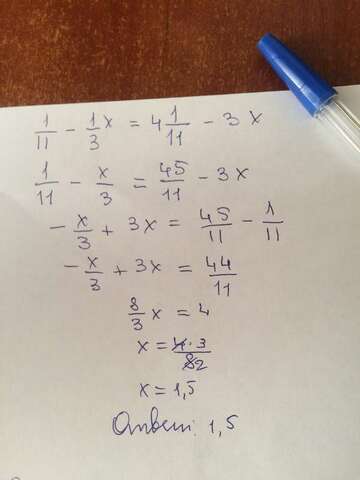 1/11 - 1/3 x = 4 1/11 - 3x
1/11 - x/3 = 45/11 - 3x
-x/3 + 3x = 45/11 - 1/11
-x/3 + 3x = 44/11
8/3 x = 4
x = 4·3/82
x = 1,5
Ответ: 1,5